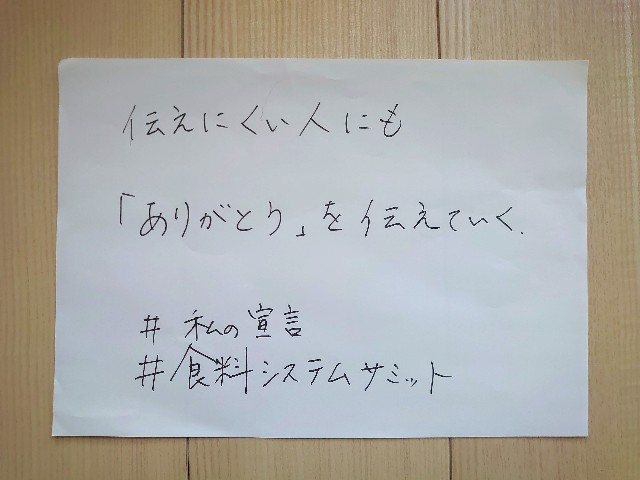 伝えにくい人にも
「ありがとう」を伝えていく.
# 私の宣言
# 食料システムサミット